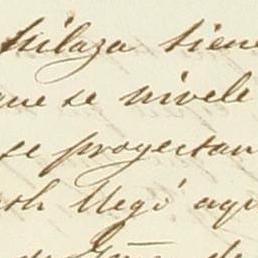 hilaza tiene
que se nivele
se proyectan
llegó aqu
de